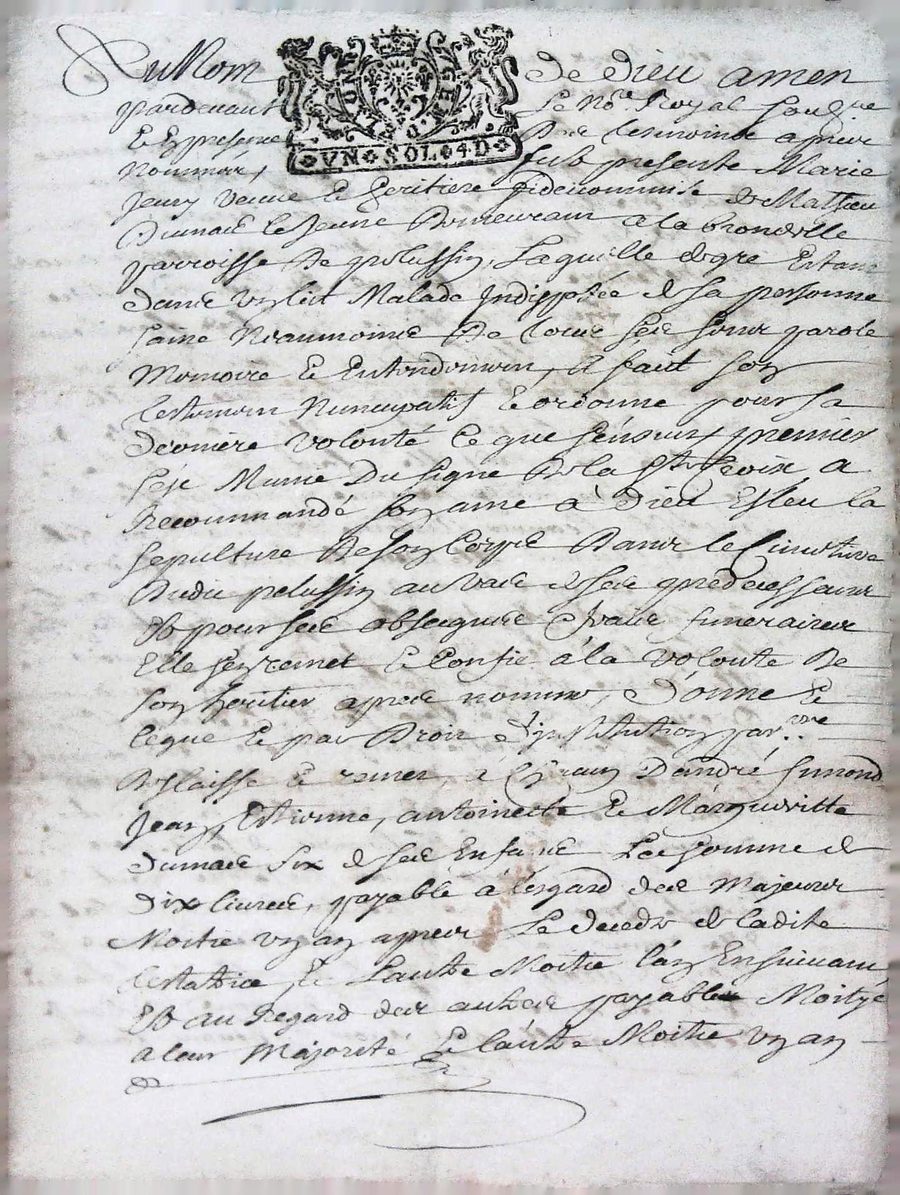 Au Nom de Dieu amen
pardevant Le No.re Royal Soubz.ne
Et En presence Des tesmoins apres
Nommés, fut presente Marie
Jeury veuve et heritiere fideicommise de Mathieu
Dumas le Jeune Demeurant a la bronville
parroisse De pelussin, Laquelle de gre Estant
dans un lict Malade Indisposée de sa personne
saine Neaumoins De tous ses sens parole
Memoire Et Entendement, a fait son
testament Nuncupatif Et ordonne pour sa
derniere volonté Ce que sensuit, premier
sest Munie Du signe De la Ste Croix, a
Recommandé son ame à Dieu Esleu la
sepulture De son Corps Dans le Cimetiere
Dudit pelussin au vas de ses predecesseurs
Et pour ses obseques frais funeraires
Elle sen remet Et Confie à la volonte De
son heritier apres nommé, Donne Et
legue Et par Droit d'institution par.re
Delaisse Et remet, à André Simond
Jean, Estienne, antoinette Et Margueritte
Dumas six de ses Enfans La somme de
Dix livres, payable à l'esgard des Majeurs
Moitie un an apres Le deceds de ladite
testatrice, Et L'autre Moitie l'an Ensuivant
Et au Regard des autres payable Moityé
a leur Majorité Et l'autre Moitie un an
VN SOL 4 D